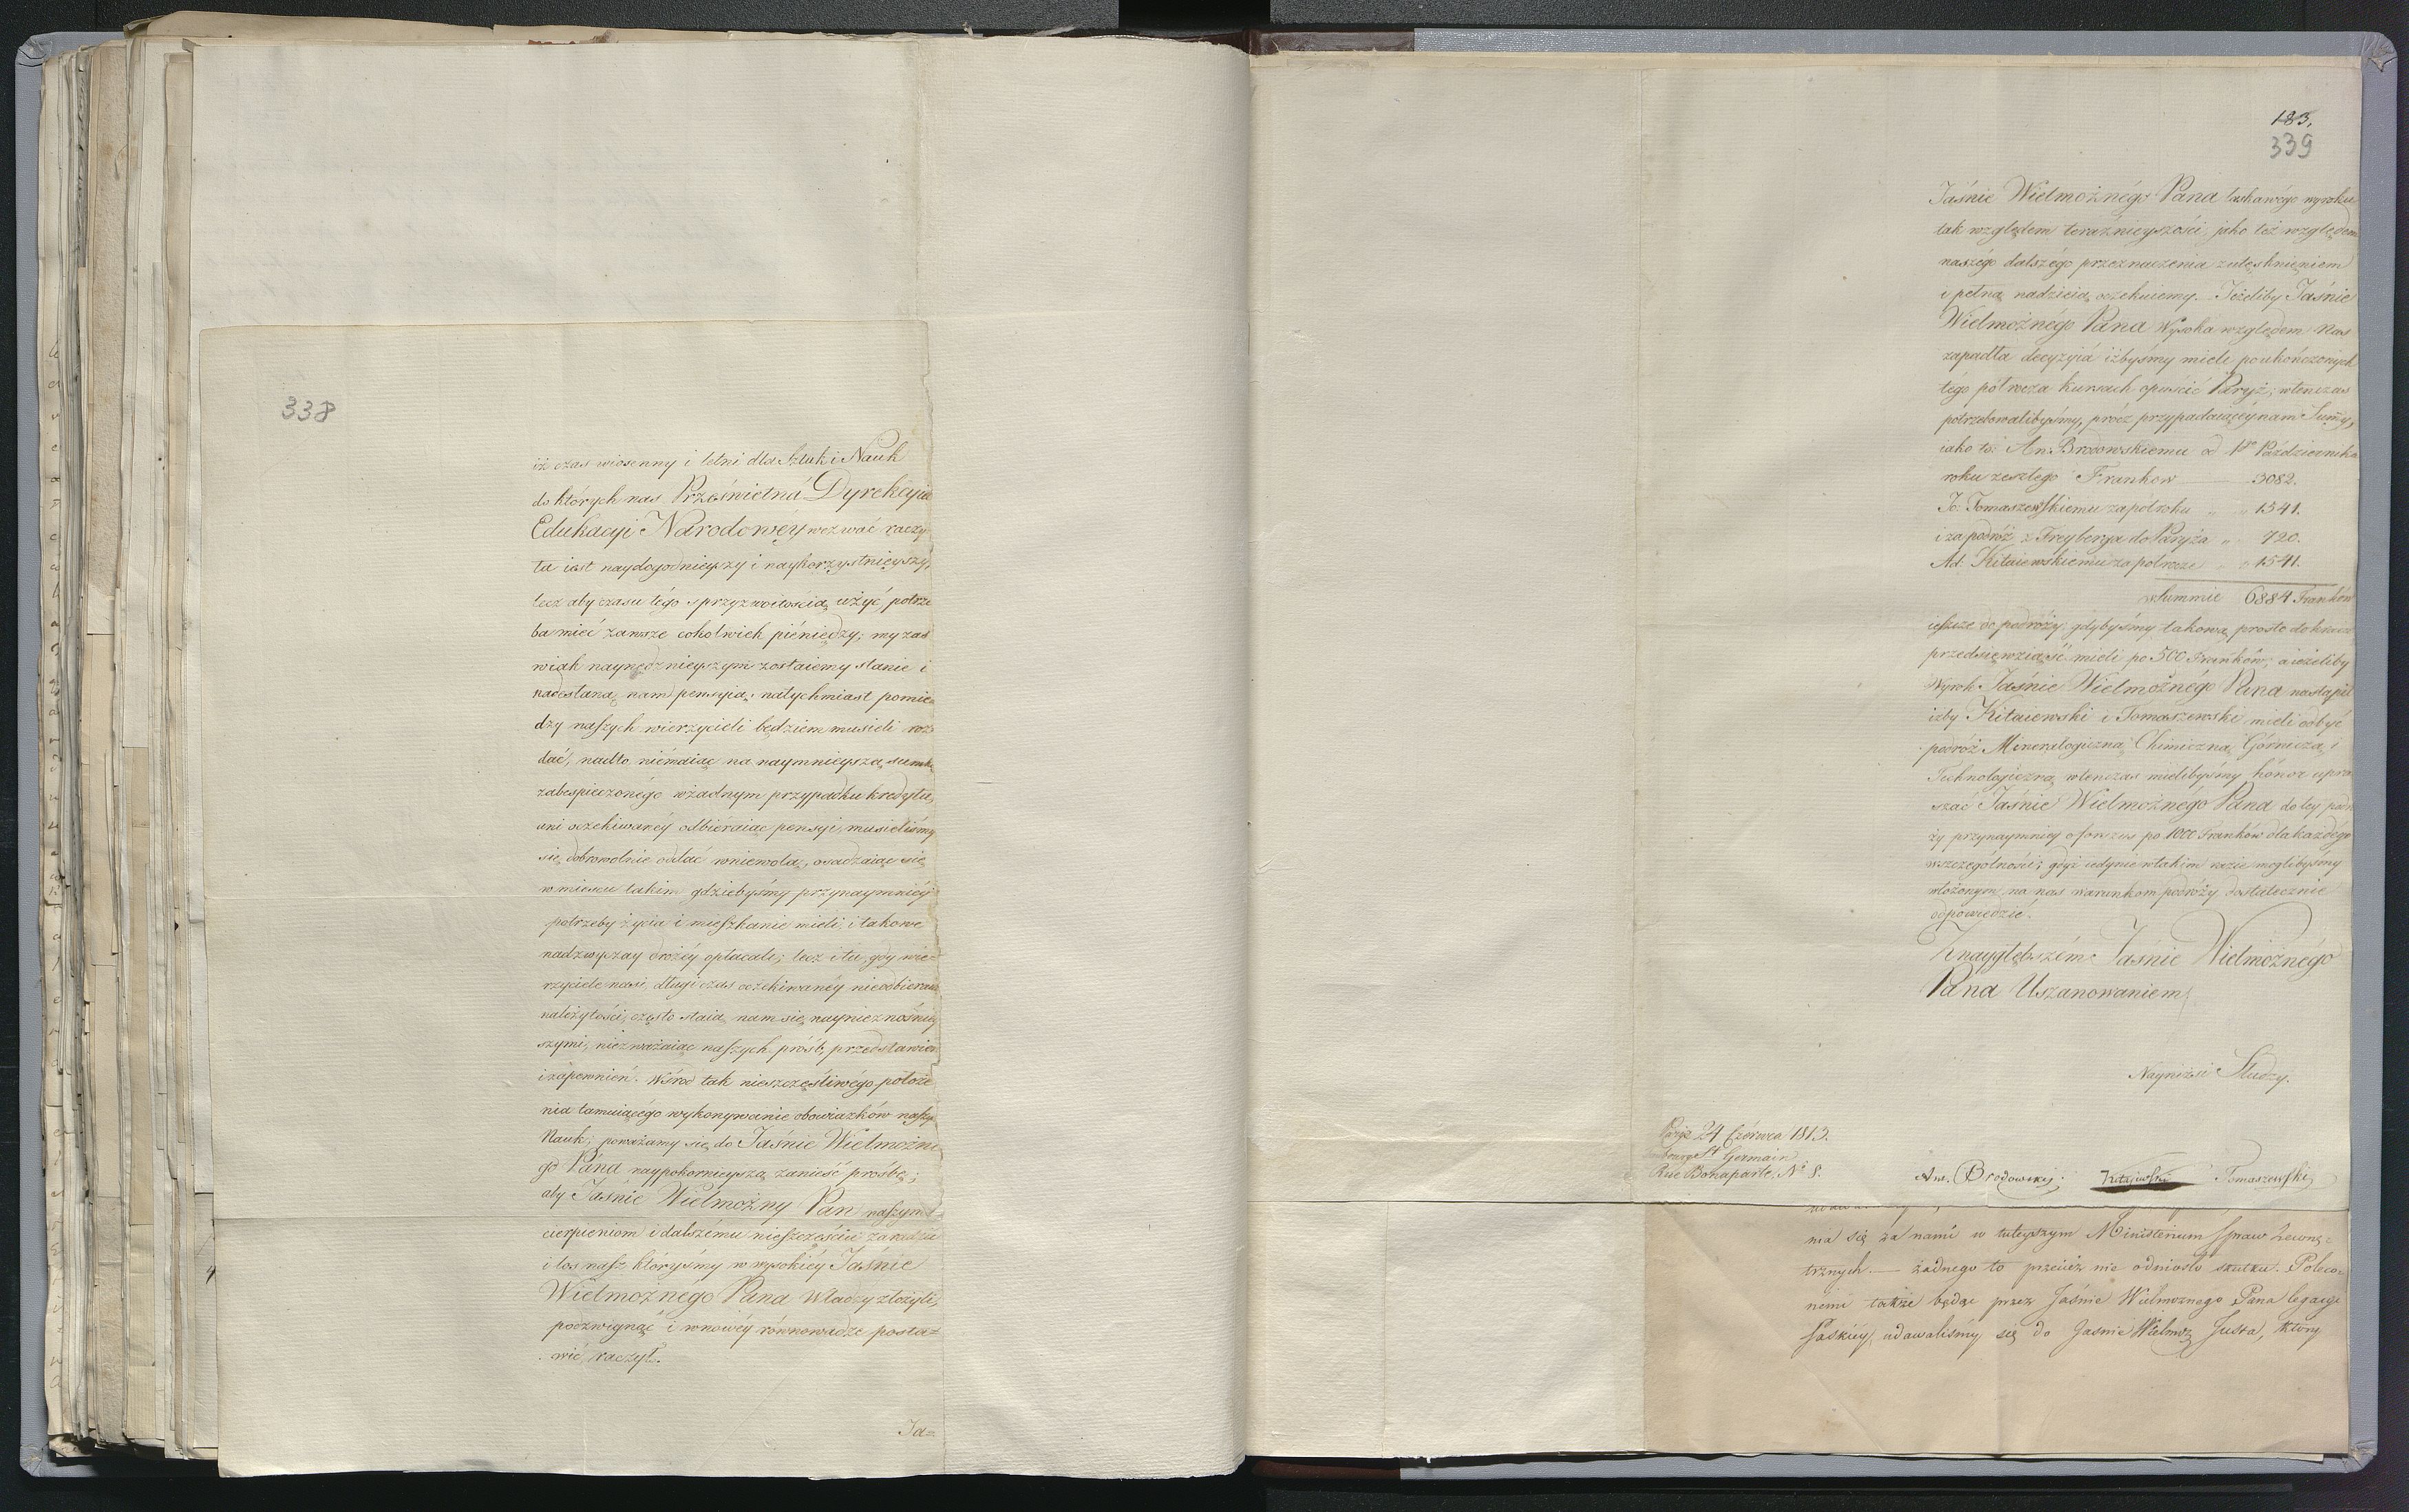 338
iż czas wiosenny i letni dla Sztuk i Nauk
do których nas Prześwietná Dyrekcyia
Edukacyi Narodowéy wezwać raczy=
ła iest naydogodnieyszy i naykorzystnieyszy,
lecz aby czasu tégo s przyzwoitością użyć, potrze
ba mieć zawsze cokolwiek piéniędzy; my zaś
wiak naynędznieyszym zostaiemy stanie i
nadesłaną nam pensyią natychmiast pomię=
dzy naszych wierzycieli będziem musieli roz=
dać, nadto niémaiąc na naymnieyszą sumkę
zabespieczonégo w żadnym przypadku kredytu,
ani oczekiwanéy odbiéraiąc pensyi, musieliśmy
się dobrowolnie oddać w niewolą, osadzaiąc się
w miescu takim gdziebyśmy przynaymniéy
potrzeby życia i mieszkanie mieli, i takowe
nadzwyczay drożéy opłacali; lecz i tu, gdy wie=
rzyciele nasi, długi czas oczekiwanéy nieodbieraią
należytości, często staią nam się naynieznośniey
szymi, niezważaiąc naszych próśb, przedstawień
i zapewnień. Wśrod tak nieszczęśliwégo położe
nia tamuiącégo wykonywanie obowiązków naszych
Nauk; poważamy się do Jaśnie Wielmożné
go Pána naypokornieyszą zanieść prośbę;
aby Jaśnie Wielmożny Pan naszym
cierpieniom i dalszému nieszczęściu zaradził
i los nasz któryśmy w wysokiéy Jaśnie
Wielmożnégo Pána Władzy złożyli,
podzwignąć i w nowéy równowadze posta=
wić, raczył.
Ja=
183.
339
Jaśnie Wielmożnégo Pána łaskawégo wyroku
tak względem teraźnieyszości, jako też względem
naszégo dalszégo przeznaczenia z utęsknieniem
i pełną nadzieią oczekuiemy. Jeżeliby Jaśnie
Wielmożnégo Pána Wysoka względem Nas
zapadła decyzyiá iżbyśmy mieli po ukończonych
tégo półrocza kursach opuścić Paryż; wtenczas
potrzebowalibyśmy, prócz przypadaiącéy nam Summy,
iako to: An. Brodowskiemu od 1go Października
roku zeszłego Franków — 3082.
Jo: Tomaszewskiemu za półroku „ „ 1541.
i za podróż z Freyberga do Paryża „ 720.
Ad: Kitaiewskiemu za półrocze „ „ 1541.
w Summie 6884 Franków
ieszcze do podróży, gdybyśmy takową prosto do kraiu
przedsięwziąść mieli po 500 Franków; a ieżeliby
Wyrok Jaśnie Wielmożnégo Pána nastąpił
iżby Kitaiewski i Tomaszewski mieli odbyć
podróż Mineralogiczną Chimiczną Górniczą i
Technologiczną, wtenczas mielibyśmy hónor upra
szać Jaśnie Wielmożnégo Pána do téy podró
ży przynaymniéy o fonszus po 1000 Franków dla każdégo
w szczególności; gdyż iedynie w takim razie moglibyśmy
włożonym na nas warunkom podróży dostatecznie
odpowiedzić.
Z nayglębszém Jaśnie Wielmożnégo
Pána Uszanowaniem
Nayniżsi Słudzy.
Paryż 24 Czérwca 1813.
bourg St Germain
Rue Bonaparte, No 8.
Ant. Brodowsky. Kitajewski Tomaszewski
ma się za nami w tuteyszym Ministerium spraw Zewnę=
trznych — żadnego to przecież nie odniosło skutku. Poleco=
nemi także będąc przez Jaśnie Wielmożnego Pana legacyi
Saskiéy, udawaliśmy się do Jaśnie Wielmoż Justa, który